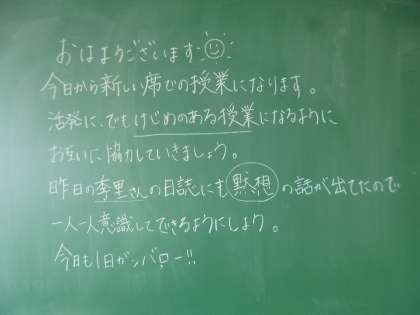 おはようございます
今日から新しい席での授業になります。
活発に、でもけじめのある授業になるように
お互いに協力していきましょう。
昨日の李里さんの日誌にも黙想の話が出てたので
一人一人意識してできるようにしよう。
今日も1日ガンバロー!!